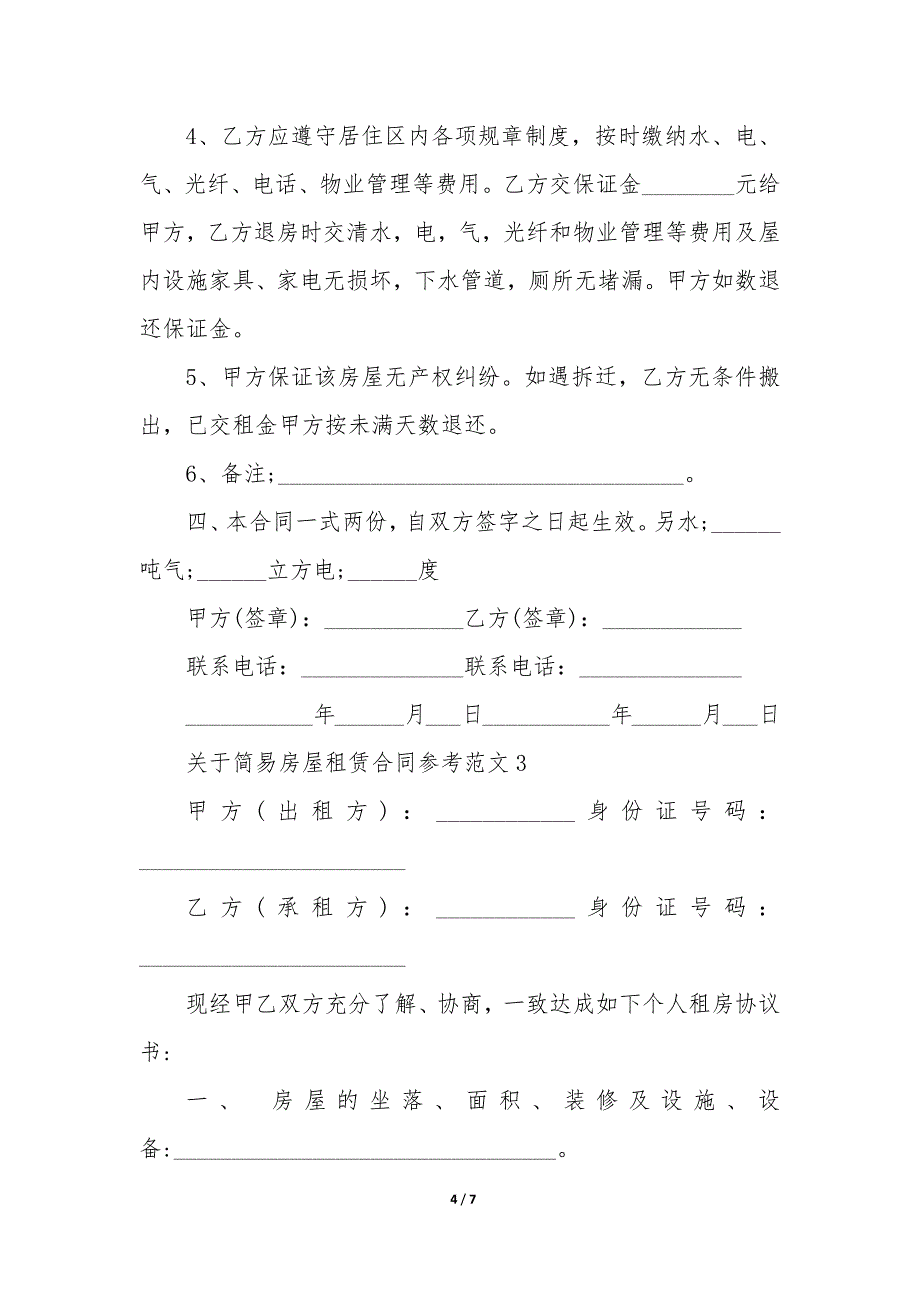 4、乙方应遵守居住区内各项规章制度，按时缴纳水、电、
气、光纤、电话、物业管理等费用。乙方交保证金________元给
甲方，乙方退房时交清水，电，气，光纤和物业管理等费用及屋
内设施家具、家电无损坏，下水管道，厕所无堵漏。甲方如数退
还保证金。
5、甲方保证该房屋无产权纠纷。如遇拆迁，乙方无条件搬
出，已交租金甲方按未满天数退还。
6、备注;___________________________________。
四、本合同一式两份，自双方签字之日起生效。另水;______
吨气;______立方电;______度
甲方(签章)：____________乙方(签章)：____________
联系电话：______________联系电话：______________
___________年______月___日___________年______月___日
关于简易房屋租赁合同参考范文3
甲方(出租方)：____________身份证号码：
_______________________
乙方(承租方)：____________身份证号码：
_______________________
现经甲乙双方充分了解、协商，一致达成如下个人租房协议
书:
一、 房屋的坐落、面积、装修及设施、设
备:_________________________________。
4 / 7